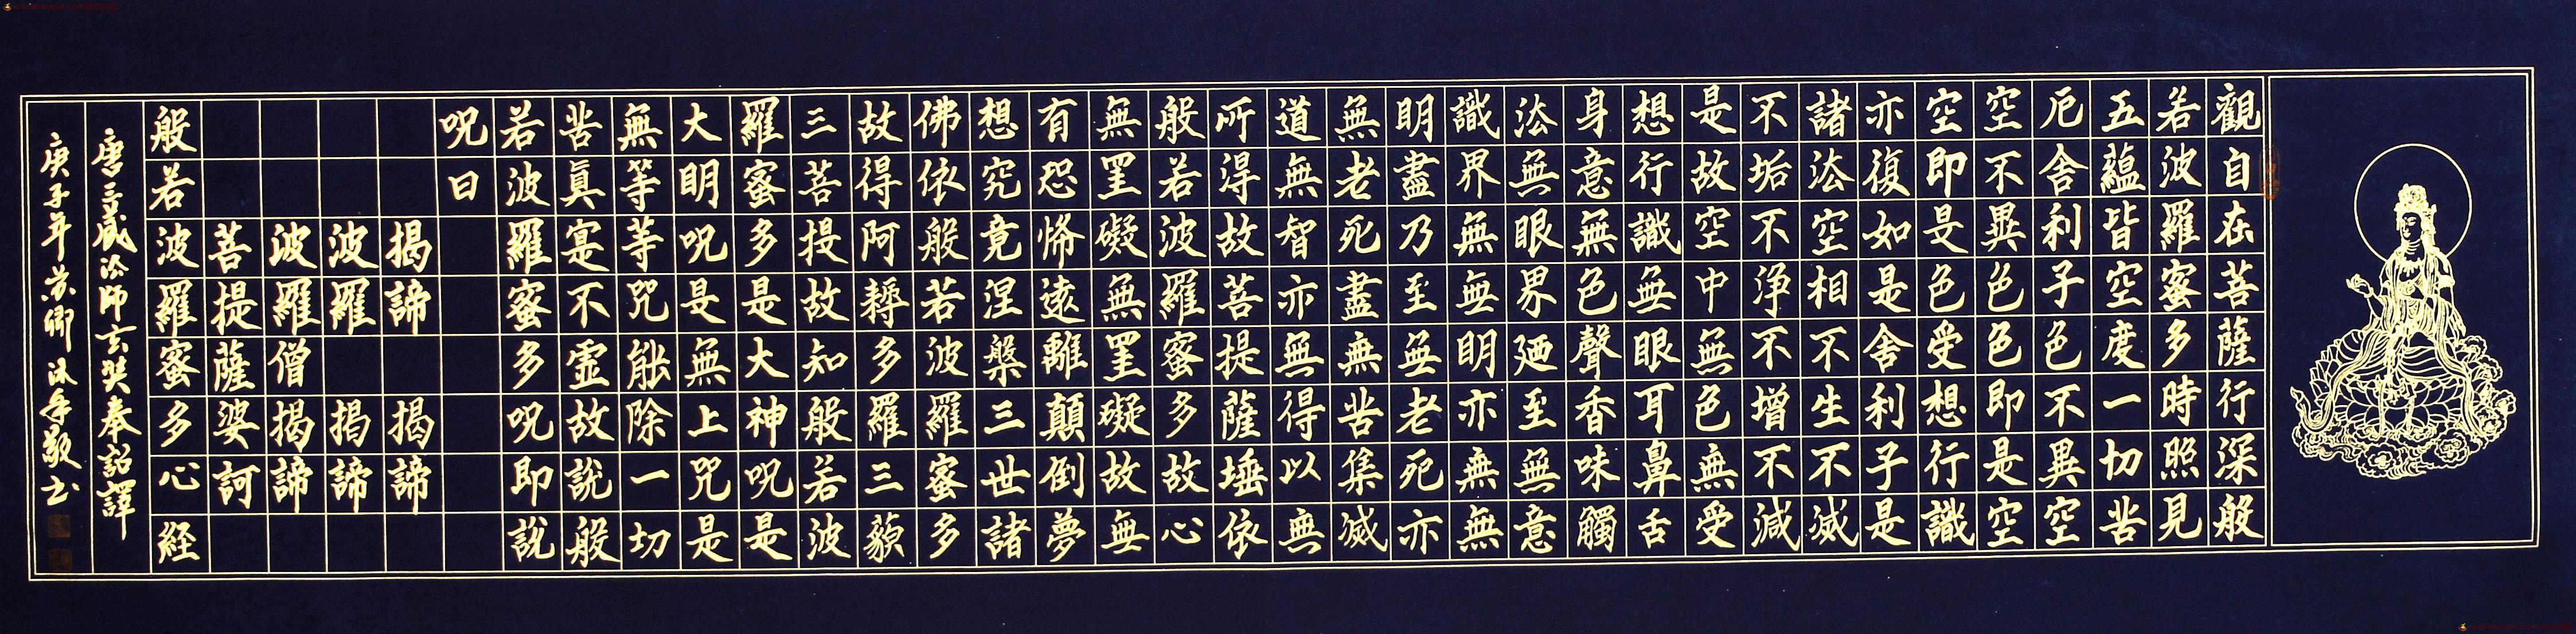 觀自在菩薩行深般
若波羅蜜多時照見
五蘊皆空度一切苦
厄舍利子色不異空
空不異色色即是空
空即是色受想行識
亦復如是舍利子是
諸法空相不生不滅
不垢不淨不增不減
是故空中無色無受
想行識無眼耳鼻舌
身意無色聲香味觸
法無眼界廼至無意
識界無無明亦無無
明盡乃至無老死亦
無老死盡無苦集滅
道無智亦無得以無
所得故菩提薩埵依
般若波羅蜜多故心
無罣礙無罣礙故無
有恐怖遠離顛倒夢
想究竟涅槃三世諸
佛依般若波羅蜜多
故得阿耨多羅三藐
三菩提故知般若波
羅蜜多是大神呪是
大明呪是無上咒是
無等等咒能除一切
苦真寔不虛故說般
若波羅蜜多呪即說
呪曰
揭諦 揭諦
波羅 揭諦
波羅僧揭諦
菩提薩婆訶
般若波羅蜜多心経
唐三藏法師玄奘奉詔譯
庚子年苏卿沐手敬书